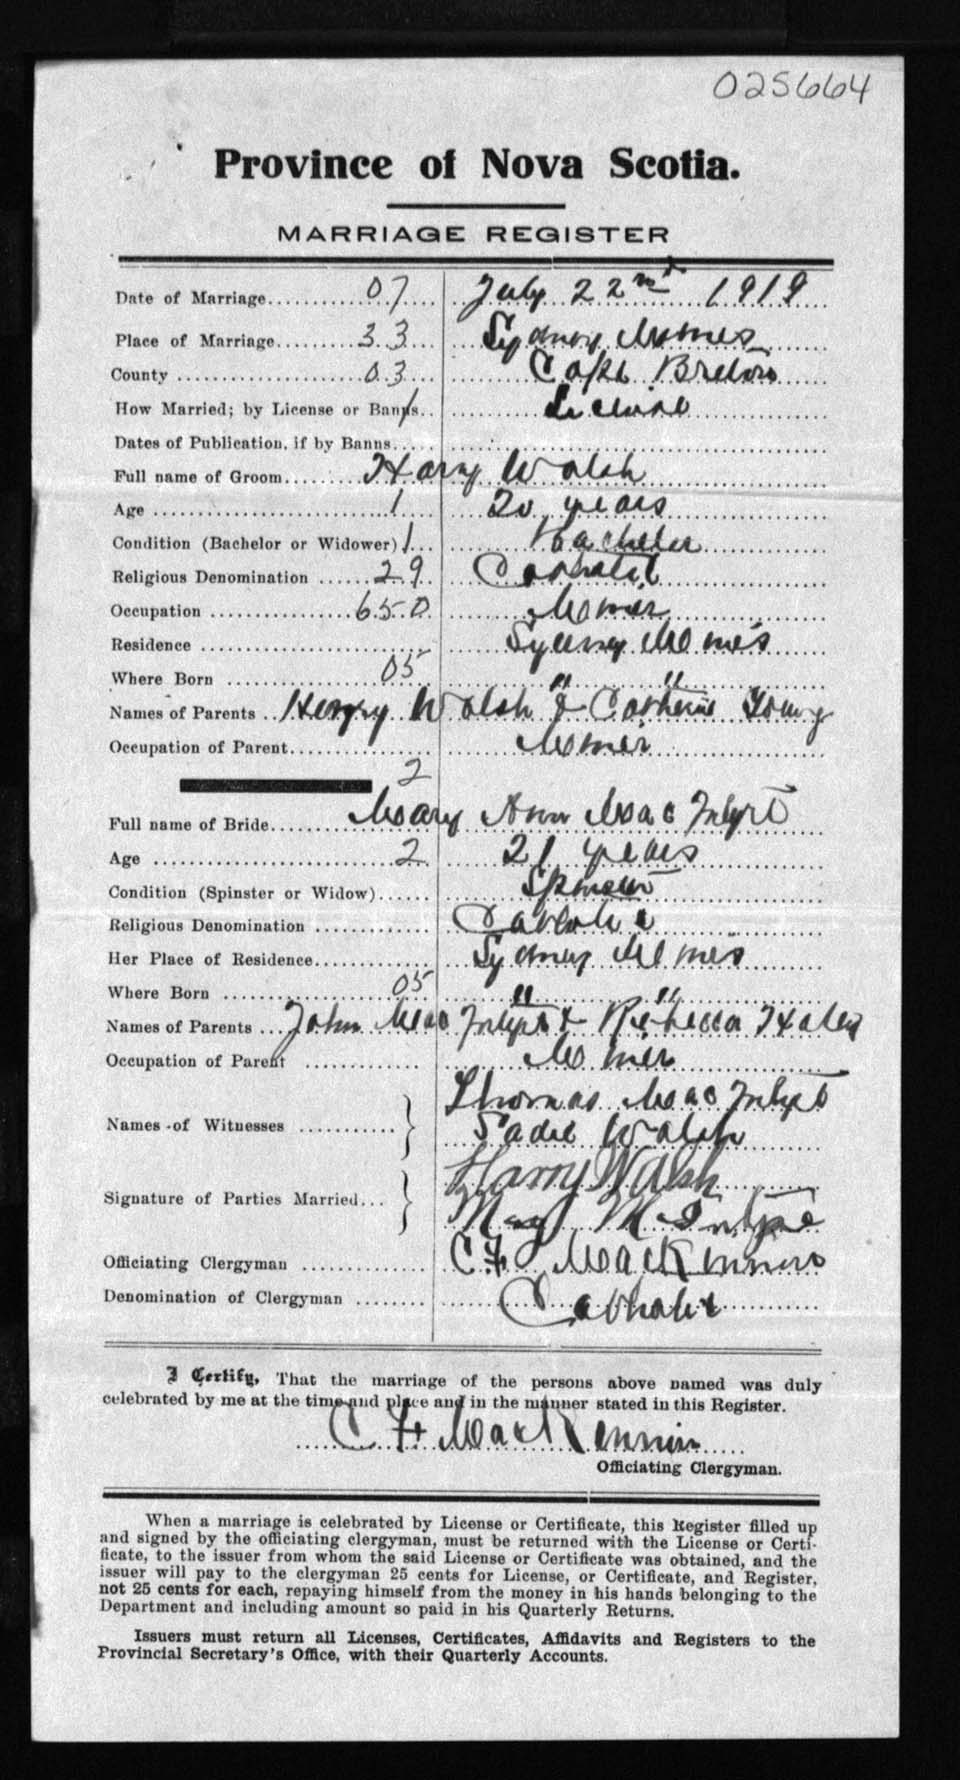 025664
Province of Nova Scotia.
MARRIAGE REGISTER
Date of Marriage 07 July 22nd 1919
Place of Marriage 33 Sydney Mines
County 03 Cape Breton
How Married; by License or Banns License
Dates of Publication, if by Banns
Full name of Groom Harry Walsh
Age 1 20 years
Condition (Bachelor or Widower) 1 Bachelor
Religious Denomination 29 Catholic
Occupation 650 Miner
Residence Sydney Mines
Where Born 05 " "
Names of Parents Henry Walsh & Catherine Young
Occupation of Parent Miner
2
Full name of Bride Mary Ann MacIntyre
Age 2 21 years
Condition (Spinster or Widow) Spinster
Religious Denomination Catholic
Her Place of Residence Sydney Mines
Where Born 05 " "
Names of Parents John MacIntyre & Rebecca
Occupation of Parent Miner
Names of Witnesses } Thomas MacIntyre
Sadie Walsh
Signature of Parties Married } Harry Walsh
Mary McIntyre
Officiating Clergyman C F MacKinnon
Denomination of Clergyman Catholic
I Certify, That the marriage of the persons above named was duly
celebrated by me at the time and place and in the manner stated in this Register.
C F MacKinnon
Officiating Clergyman.
When a marriage is celebrated by License or Certificate, this Register filled up
and signed by the officiating clergyman, must be returned with the License or Certi-
ficate, to the issuer from whom the said License or Certificate was obtained, and the
issuer will pay to the clergyman 25 cents for License, or Certificate, and Register,
not 25 cents for each, repaying himself from the money in his hands belonging to the
Department and including amount so paid in his Quarterly Returns.
Issuers must return all Licenses, Certificates, Affidavits and Registers to the
Provincial Secretary's Office, with their Quarterly Accounts.